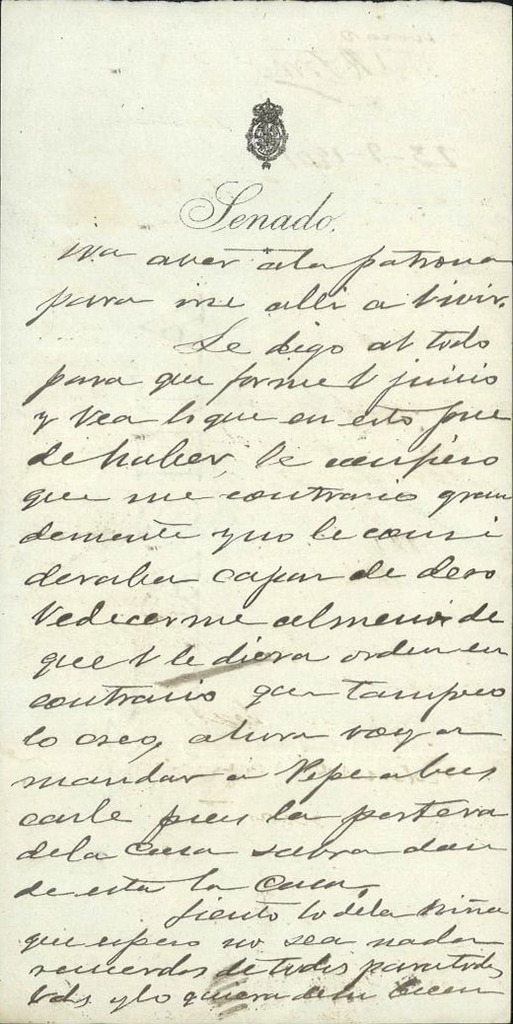 Senado.
iva aver ala patrona
para irse alli a vivir.
Le digo al todo
para que forme V juicio
y vea lo que en esto pue
de haber, le confieso
que me contrario gran
demente y no le consi
deraba capaz de deso
vedecerme almenos de
que V le diera orden en
contrario que tampoco
lo creo, ahora voy a
mandar a Pepe a bus
carle pues la portera
dela casa sabra don
de esta la casa.
Siento lo dela niña
que espero no sea nada
recuerdos de todos para todos
Vds y lo quiera de su